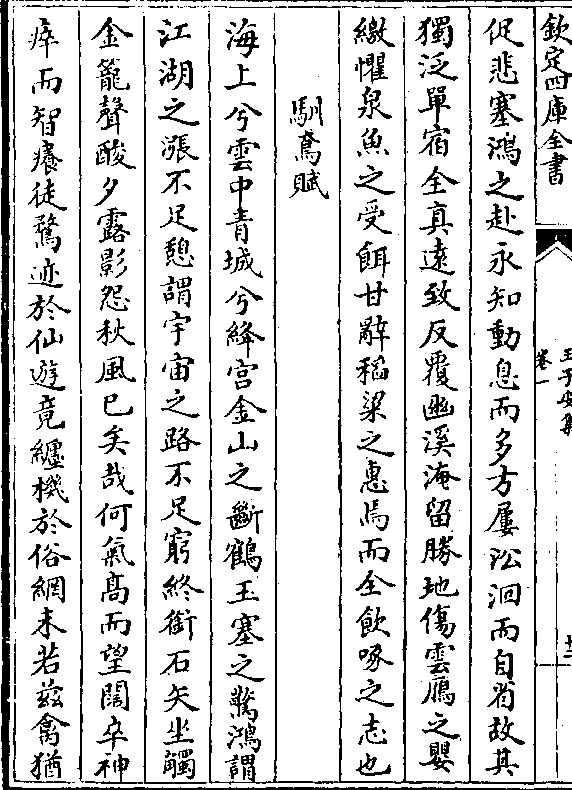 欽定四庫全書
王子安集
卷一
十二
促悲塞鴻之赴永知動息而多方屢㳂洄而自省故其
獨泛單宿全真遠致反覆幽溪淹留勝地傷雲鴈之嬰
繳懼泉魚之受餌甘辭稻粱之惠焉而全飲啄之志也
馴鳶賦
海上兮雲中青城兮絳宮金山之斷鶴玉塞之驚鴻謂
江湖之漲不足憩謂宇宙之路不足窮終銜石矢坐觸
金籠聲酸夕露影怨秋風已矣哉何氣髙而望闊卒神
瘁而智癢徒騖迹於仙遊竟纏機於俗網未若茲禽猶